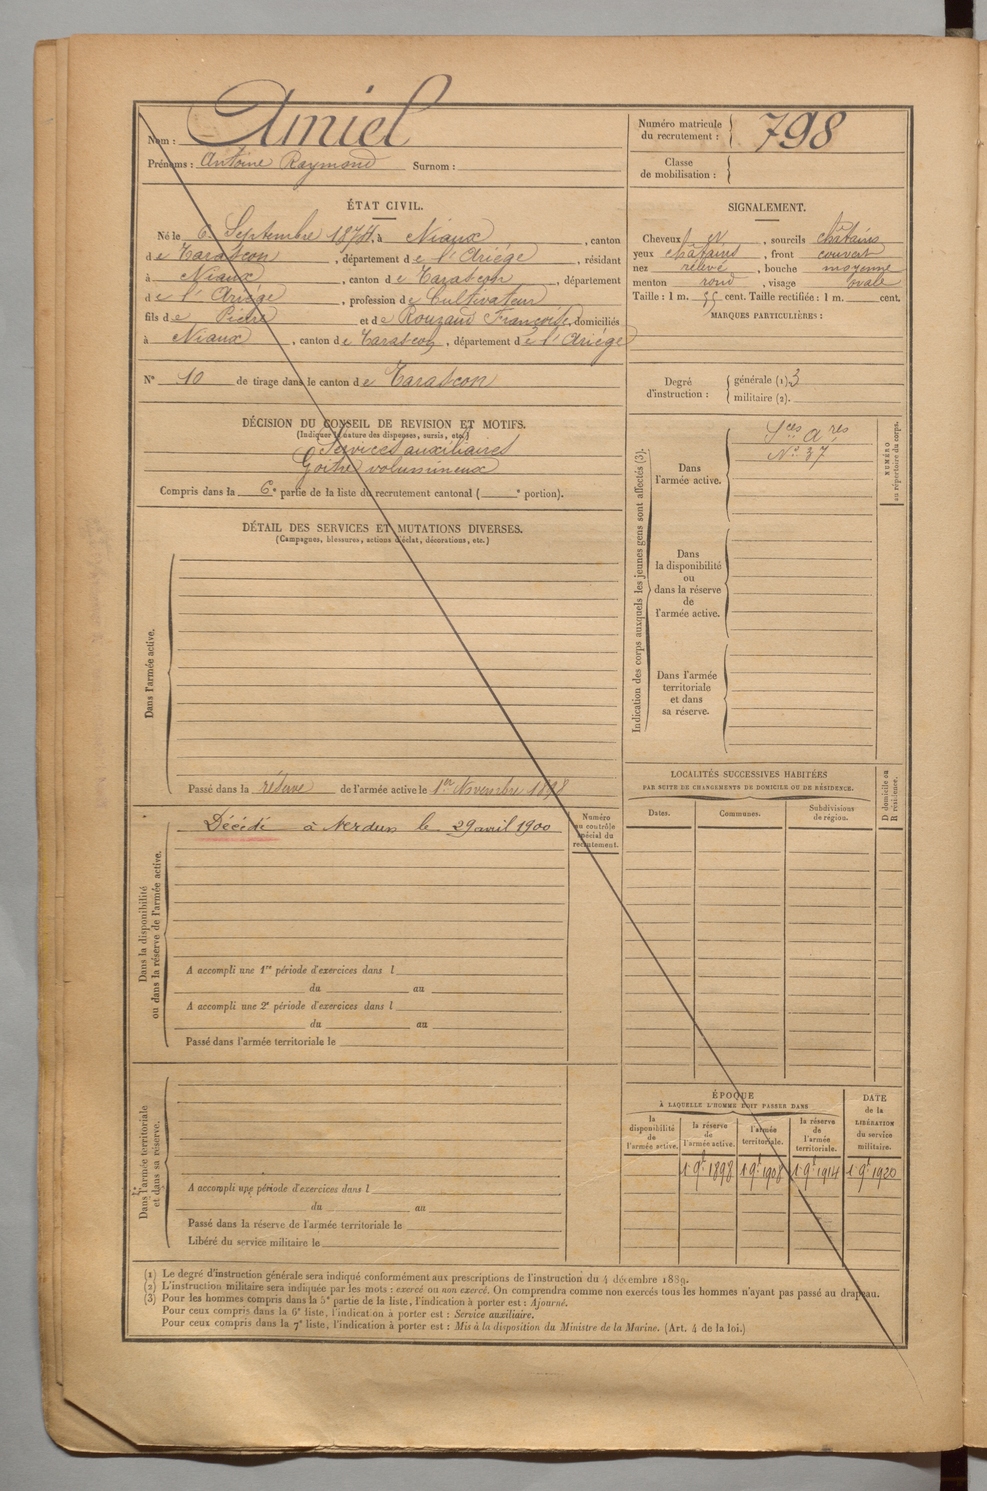 Nom : Amiel
Prénoms : Antoine Raymond Surnom :
Numéro matricule du recrutement : 798
Classe de mobilisation :
ÉTAT CIVIL.
Né le 6 Septembre 1874, à Niaux , canton
de Tarascon , département de l'Ariége , résidant
à Niaux , canton de Tarascon , département
de l'Ariége , profession de Cultivateur
fils de Pierre et de Rouzaud Françoise, domiciliés
à Niaux , canton de Tarascon , département de l'Ariége
N° 10 de tirage dans le canton de Tarascon
SIGNALEMENT.
Cheveux et , sourcils châtains
yeux châtains , front couvert
nez relevé , bouche moyenne
menton rond , visage ovale
Taille : 1 m. 55 cent. Taille rectifiée : 1 m. cent.
MARQUES PARTICULIÈRES :
Degré d'instruction : générale (1). 3
militaire (2).
DÉCISION DU CONSEIL DE REVISION ET MOTIFS.
(Indiquer la nature des dispenses, sursis, etc.)
Services auxiliaires
Goitre volumineux
Compris dans la 6e partie de la liste du recrutement cantonal ( e portion).
DÉTAIL DES SERVICES ET MUTATIONS DIVERSES.
(Campagnes, blessures, actions d'éclat, décorations, etc.)
Dans l'armée active.
Passé dans la réserve de l'armée active le 1er Novembre 1898
Indication des corps auxquels les jeunes gens sont affectés (3).
Dans l'armée active.
Sces Ares
N° 37
NUMÉRO au répertoire du corps.
Dans
la disponibilité
ou
dans la réserve
de
l'armée active.
Dans l'armée
territoriale
et dans
sa réserve.
Dans la disponibilité
ou dans la réserve de l'armée active.
Décédé à Verdun le 29 avril 1900
Numéro
au contrôle
spécial du
recrutement.
A accompli une 1re période d'exercices dans l
du au
A accompli une 2e période d'exercices dans l
du au
Passé dans l'armée territoriale le
LOCALITÉS SUCCESSIVES HABITÉES
PAR SUITE DE CHANGEMENTS DE DOMICILE OU DE RÉSIDENCE.
Dates.
Communes.
Subdivisions
de région.
D domicile ou
R résidence.
Dans l'armée territoriale
et dans sa réserve.
A accompli une période d'exercices dans l
du au
Passé dans la réserve de l'armée territoriale le
Libéré du service militaire le
ÉPOQUE
À LAQUELLE L'HOMME DOIT PASSER DANS
la
disponibilité
de
l'armée active.
la réserve
de
l'armée active.
l'armée
territoriale.
la réserve
de
l'armée
territoriale.
DATE
de la
LIBÉRATION
du service
militaire.
1 9t 1898
1 9t 1908
1 9t 1914
1 9t 1920
(1) Le degré d'instruction générale sera indiqué conformément aux prescriptions de l'instruction du 4 décembre 1889.
(2) L'instruction militaire sera indiquée par les mots : exercé ou non exercé. On comprendra comme non exercés tous les hommes n'ayant pas passé au drapeau.
(3) Pour les hommes compris dans la 5e partie de la liste, l'indication à porter est : Ajourné.
Pour ceux compris dans la 6e liste, l'indication à porter est : Service auxiliaire.
Pour ceux compris dans la 7e liste, l'indication à porter est : Mis à la disposition du Ministre de la Marine. (Art. 4 de la loi.)